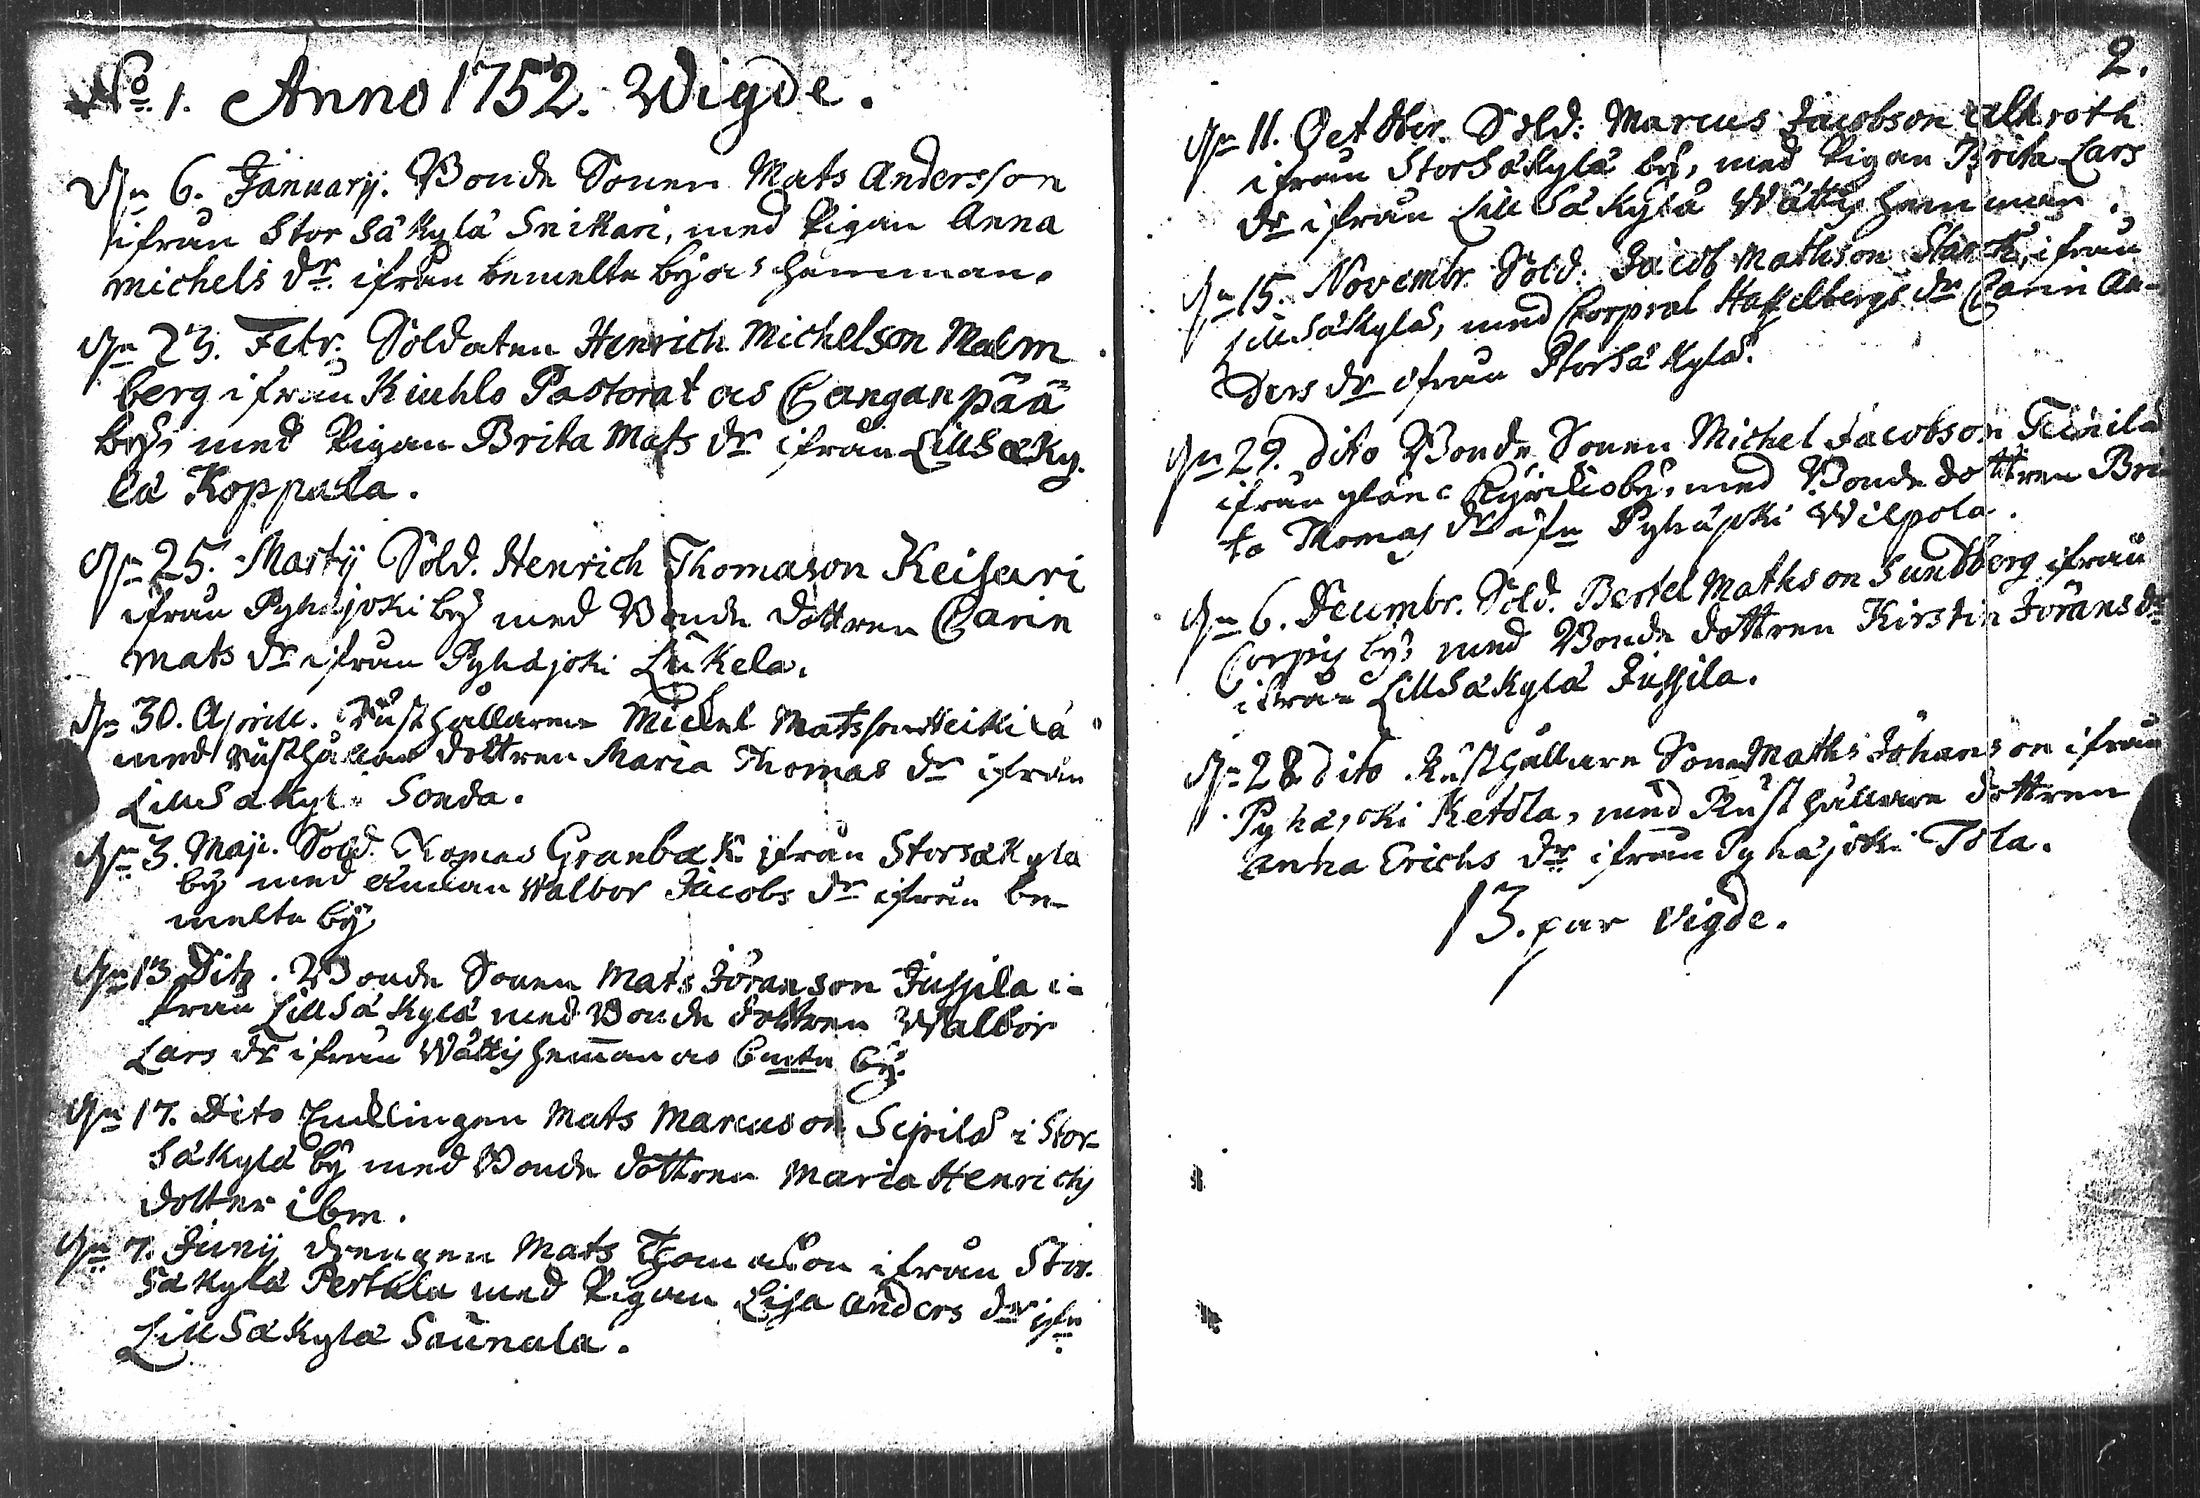 No. 1. Anno 1752. Wigde.
Dn 6. Januarij. Bonde Sonen Mats Andersson
ifrån Stor Säkylä Snikkari, med Pigan Anna
Michels dr. ifrån bemelte by as hemman.
Dn 23. Febr. Soldaten Henrich Michelson Malm
berg ifrån Kiuhlo Pastorat as Canganpää
by, med Pigan Brita Mats dr ifrån LillSäky-
lä Koppala.
Dn 25. Martij Sold. Henrich Thomason Keisari
ifrån Pyhäjoki by med Bonde dottren Carin
Mats dr ifrån Pyhäjoki Liukela.
Dn 30. Aprill. Rusthållaren Mickel Matsson Heikilä
med Rusthållare dottren Maria Thomas dr ifrån
LillSäkylä Sonda.
Dn 3. Maji. Sold. Tomas Granbäk ifrån Storsäkyla
by med änkan Walbor Jacobs dr ifrån be-
melte by
Dn 13 Dito. Bonde Sonen Mats Jöranson Jussila i-
från LillSäkylä med Bonde dottren Walbor
Lars dr ifrån Wättis hem̄an as bmte by.
Dn 17. Dito Enklingen Mats Marcuson Sipilä i Stor-
Säkylä by med Bonde dottren Maria Henrichs
dotter ibm.
Dn 7. Junij drengen Mats Thomason ifrån Stor-
Säkylä Perttula med Pigan Lisa Anders dr ifn
LillSäkylä Saunala.
2.
Dn 11. October. Sold: Marcus Jacobson Alhroth
ifrån StorSäkylä by, med Pigan Brita Lars
dr ifrån LillSäkylä Wättis hemman.
Dn 15. Novembr. Sold. Jacob Mathson Starck, ifrån
LillSäkylä, med Corpral Hasselbergs dr Carin An-
ders dr ifrån StorSäkylä.
Dn 29. Dito Bonde Sonen Michel Jacobson
ifrån by, med Bonde dottren Bri
ta Thomas dr ifn Pyhäjoki Wilpola.
Dn 6. Decembr. Sold. Bertel Mathson Sundberg ifrån
Corpis by, med Bonde dottren Kirstin Jörans dr
ifrån LillSäkylä Jussila.
Dn 28 Dito Rusthållare Sonen Maths Johanson ifrån
Pyhäjoki Ketola, med Rusthållare dottren
Anna Erichs dr ifrån Pyhäjoki Tola.
13. par vigde.